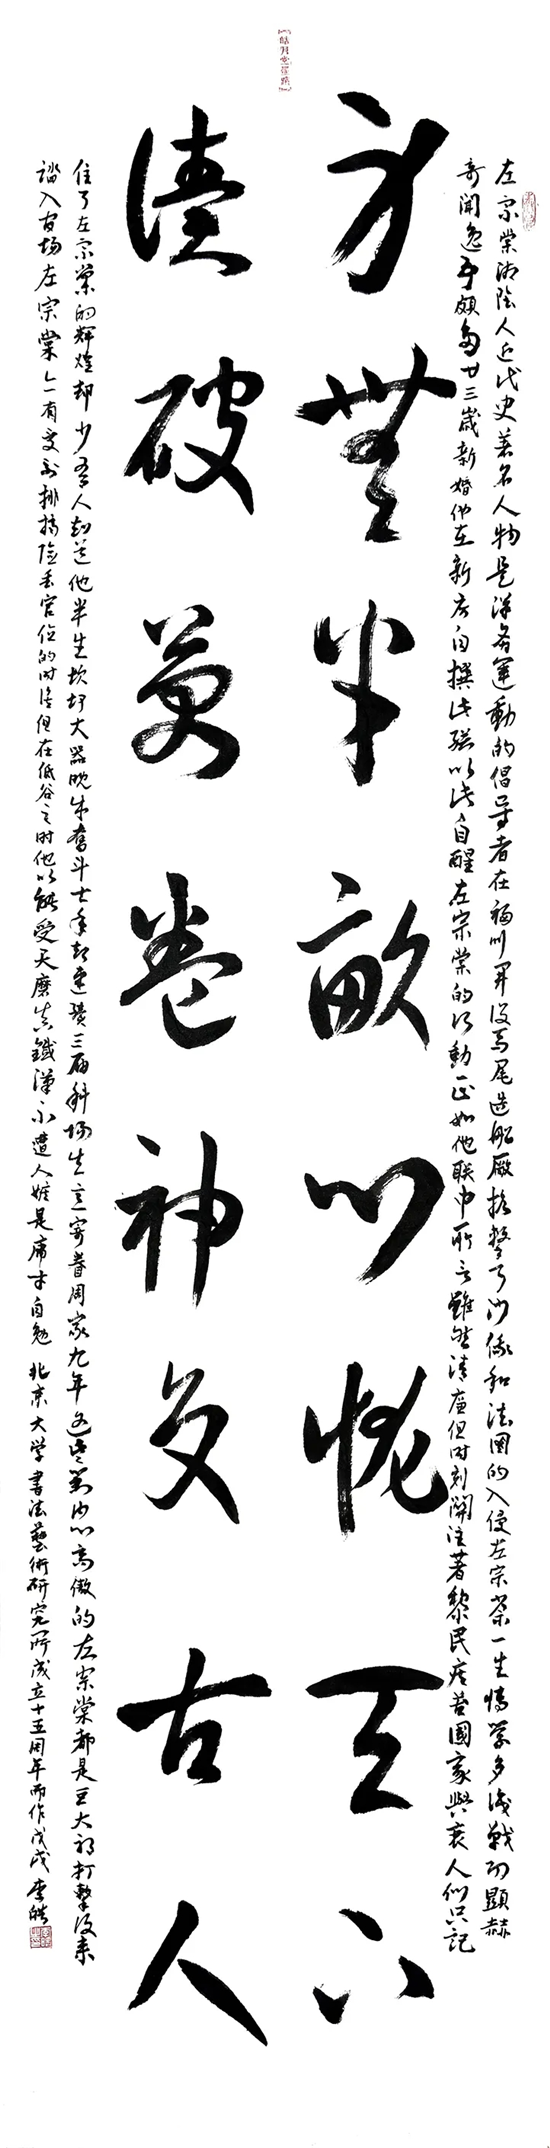 左宗棠湘陰人近代史著名人物是洋务運動的倡导者在福州開设马尾造船廠抗擊了沙俄和法國的入侵左宗棠一生博學多識戰功顯赫
奇聞逸事頗多廿三歲新婚他在新房自撰此联以此自醒左宗棠的行動正如他联中所言雖然清廉但时刻關注著黎民疾苦國家興衰人们只記
身無半畝心忧天下
讀破萬卷神交古人
住了左宗棠的輝煌却少有人知道他半生坎坷大器晚成奮斗七年却連續三届科场失意寄眷周家九年这些對内心高傲的左宗棠都是巨大的打擊後来
踏入官场左宗棠亦有受到排擠險丢官位的时候但在低谷之时他以能受天磨真鐵漢不遭人嫉是庸才自勉 北京大学書法藝術研究所成立十五周年而作戊戌李皓